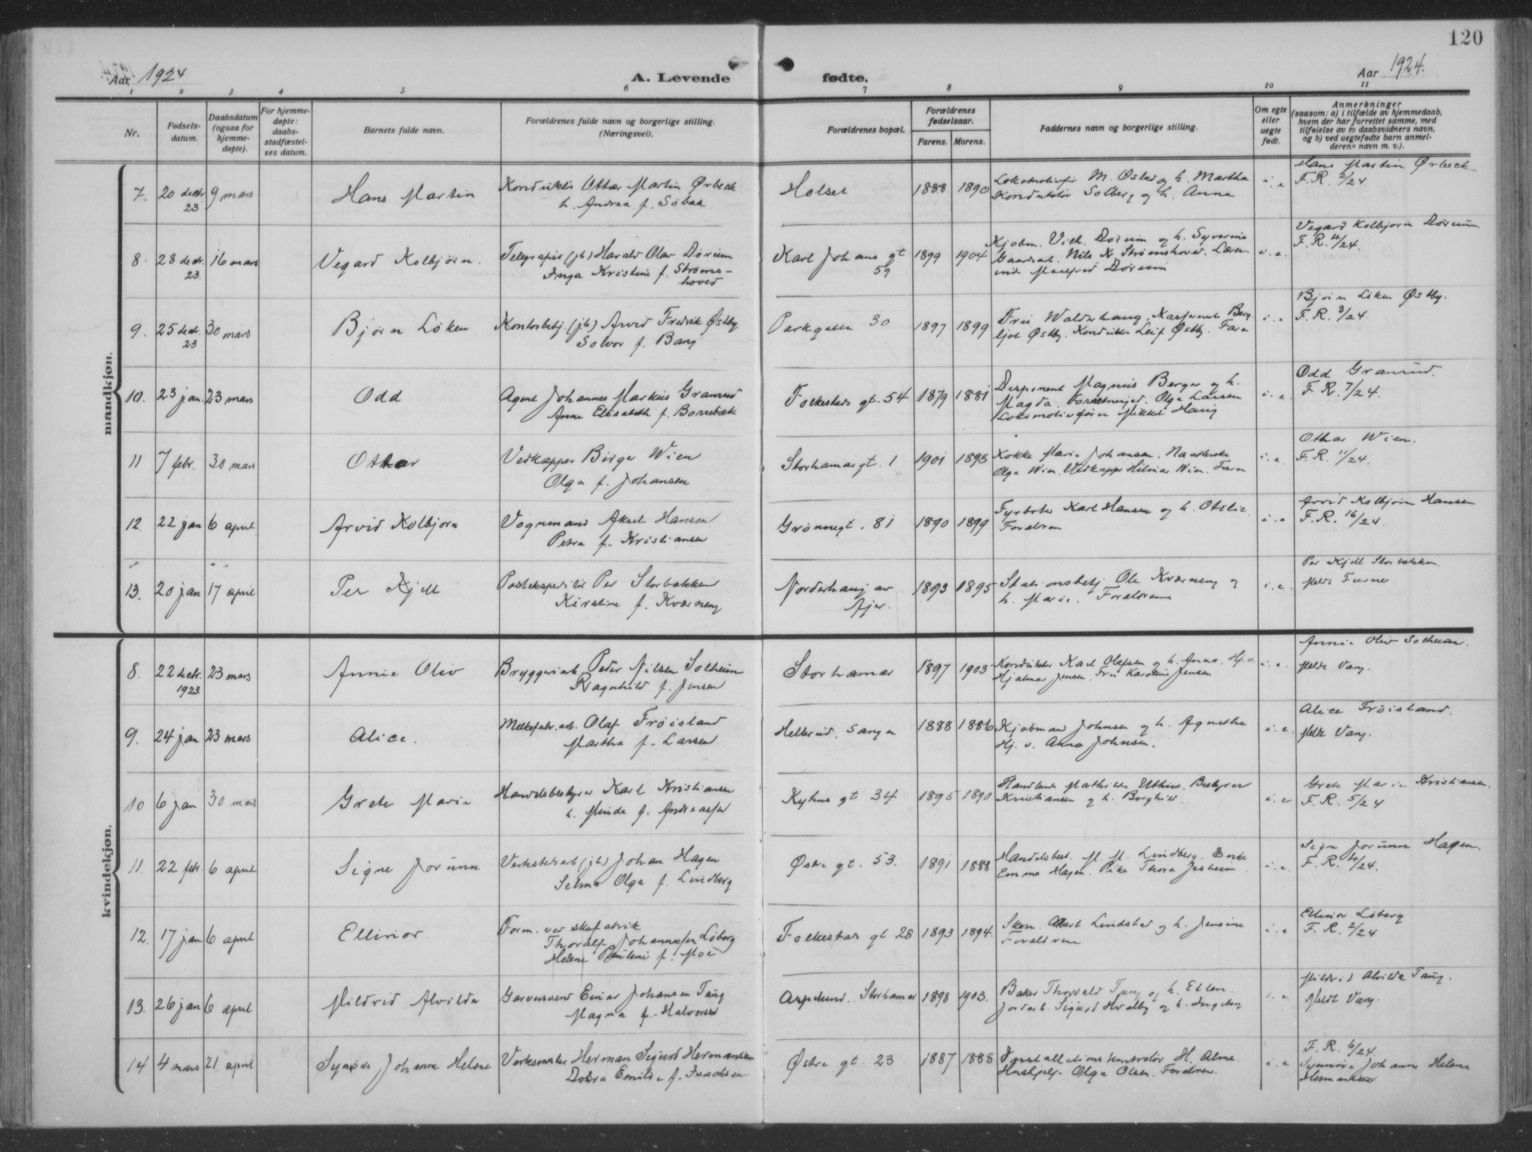 120
Aar 1924
A. Levende fødte.
Aar 1924.
1 2 3 4 5 6 7 8 9 10 11
Nr.
Fødsels-
datum.
Daabsdatum
(ogsaa for
hjemme-
døpte).
For hjemme-
døpte:
daabs-
stadfæstel-
ses datum.
Barnets fulde navn.
Forældrenes fulde navn og borgerlige stilling.
(Næringsvei).
Forældrenes bopæl.
Forældrenes
fødselsaar.
Farens. Morens.
Faddernes navn og borgerlig stilling.
Om egte
eller
uegte
født.
Anmerkninger
(saasom: a) i tilfælde av hjemmedaab,
hvem der har forrettet samme, med
tilføielse av to daabsvidners navn,
og b) ved uegtefødte barn anmel-
derens navn m. v.).
mandkjøn.
7. 20 decbr 23 9 mars Hans Martin Konduktør Othar Martin Ørbeck
h. Andrea f.
Holset 1888 1890 Lokomotivfør M. Østed og h. Martha
Konduktør Solberg og h. Anna
i. e. Hans Martin Ørbeck
F. R.
8. 28 decbr 23 16 mars Vegard Kolbjørn. Telegrafist (jb) Harald Olav Dørum
Inga Kristine f. Strøms-
hoved
Karl Johans gt
59
1899 1904 Kjøbm. Dørum og h. Syverine
Gaardsb. Nils K Strømshoved.
Manfred Dørum
i. e. Vegard Kolbjørn Dørum
F. R.
9. 25 decbr 23 30 mars Bjørn Løken Kontorbetj (jb) Arvid Fredrik Østby
Solvor f. Bang
Parkgaten 30 1897 1899 Fru Bang
Østby. Konduktør Leif Østby.
i. e. Bjørn Løken Østby.
F. R. 3/24.
10. 23 jan 23 mars Odd Agent Johannes Markus Granrud
Anna Elisabeth f.
Folkestads gt. 54 1879 1881 Disponent Magnus Berger og h.
Magda. Olga Larsen
Lokomotivfører Mikkel Haug
i. e. Odd Granrud.
F. R. 7/24.
11 7 febr. 30 mars Othar Vedkapper Birger Wien
Olga f. Johansen
Storhamargt. 1 1901 1895 Kokke Marie Johansen.
Olga Wien. Vedkapper Hilmar Wien.
i. e. Othar Wien.
F. R. 11/24.
12 22 jan 6 april Arvid Kolbjørn Vognmand Aksel Hansen
Petra f. Kristiansen
Grønnegt. 81 1890 1899 Fyrbøter Karl Hansen og h.
Forældrene
i. e. Arvid Kolbjørn Hansen
F. R. 16/24.
13. 20 jan 17 april Per Kjell Postekspeditør Per Storbakken
Kirstine f. Kværneng
Norderhaug av
1893 1895 Stationsbetj Ole Kværneng og
h. Marie. Forældrene
i. e. Per Kjell Storbakken
Meldt Furnes
kvindekjøn.
8. 22 decbr. 1923 23 mars Annie Oliv Bryggeriarb Peder Nilsen Solheim
Ragnhild f. Jensen
Storhamar 1897 1903 Konduktør Karl Olafsen og h. Anna.
Hjalmar Jensen. Fru Karoline Jensen
i. e. Annie Oliv Solheim.
Meldt Vang.
9. 24 jan 23 mars Alice. Olaf Frøisland
Martha f. Larsen
Hellerud. Sangen 1888 1886 Kjøbmand Johnsen og h. Agnethe
Hj. v. Anna Johnsen.
i. e. Alice Frøisland.
Meldt Vang.
10 6 jan 30 mars Grete Marie Handelsbestyrer Karl Kristiansen
h. Minda f.
Kyhns gt 34 1895 1890 Handlende Mathilde Bestyrer
Kristiansen og h. Borghild.
i. e Grete Marie Kristiansen.
F. R. 5/24
11. 22 febr. 6 april Signe Jorunn Verkstedsarb (jb) Johan Hagen
Selma Olga f. Lindberg
Østre gt. 53. 1891 1888 Handelsbest. M. M. Lindberg. Enke
Emma Hagen. Pike Thora
i. e. Signe Jorunn Hagen.
F. R.
12. 17 jan 6 april Ellinor. Form. ved skofabrik
Thoralf Johannesen Løberg
Helene Pauline f. Moe
Folkestads gt 28 1893 1894 Lindstad og h. Jensine
Forældrene
i. e. Ellinor Løberg
F. R. 2/24
13. 26 jan 6 april Mildrid Alvilda Garversvend Einar Johansen Taug
Magna f. Halvorsen
Asplund. Storhamar 1898 1903. Baker Thorvald Taug og h. Ellen.
Sigurd og h. Ingeborg
i. e. Mildrid Alvilda Taug.
Meldt Vang.
14 4 mars 21 april Synnøve Johanne Helene Verksmester Herman Sigurd Hermansen
Dobra Emilie f. Isachsen
Østre gt. 23 1887 1888 Installationskontrolør H. Alme.
Olga Olsen. Forældrene.
i. e F. R. 6/24
Synnøve Johanne Helene
Hermansen